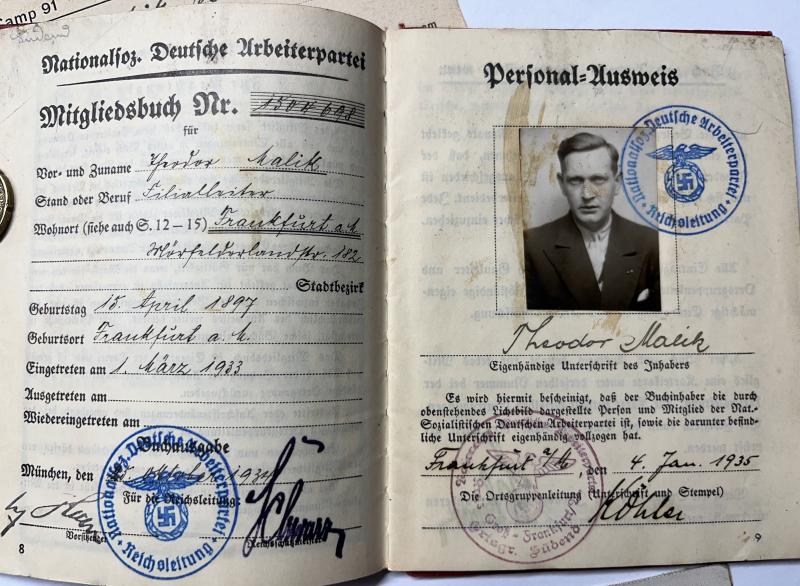 amp 91
Nationalsoz. Deutsche Arbeiterpartei
Mitgliedsbuch Nr. 1500698
für
Vor- und Zuname Theodor Malik
Stand oder Beruf Filialleiter
Wohnort (siehe auch S. 12-15) Frankfurt a. M.
Mörfelderlandstr. 182
Stadtbezirk
Geburtstag 15. April 1897
Geburtsort Frankfurt a. M.
Eingetreten am 1. März 1933
Ausgetreten am
Wiedereingetreten am
Buchausgabe
München, den Oktober 1934
Für die Reichsleitung:
Nationalsoz. Deutsche Arbeiterpartei
Reichsleitung
Vorsitzender
Reichsschatzmeister
8
Personal-Ausweis
Nationalsoz. Deutsche Arbeiterpartei
Reichsleitung
Theodor Malik
Eigenhändige Unterschrift des Inhabers
Es wird hiermit bescheinigt, daß der Buchinhaber die durch
obenstehendes Lichtbild dargestellte Person und Mitglied der Nat.-
Sozialistischen Deutschen Arbeiterpartei ist, sowie die darunter befind-
liche Unterschrift eigenhändig vollzogen hat.
Frankfurt a/M, den 4. Jan. 1935
Die Ortsgruppenleitung (Unterschrift und Stempel)
Köhler
Groß-Frankfurt
Ortsgr. Südend
9